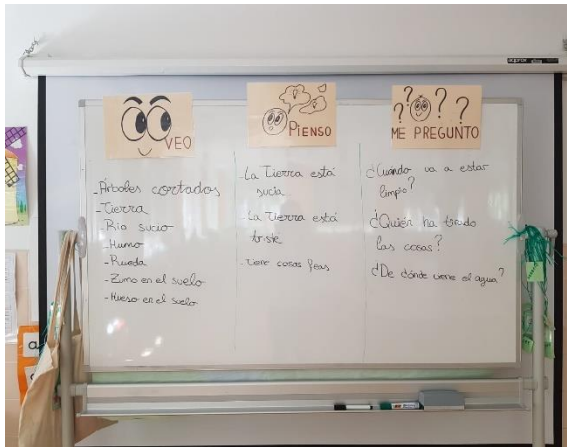 VEO
- Árboles cortados
- Tierra
- Ría sucio
- Humo
- Rueda
- Zumo en el suelo
- Hueso en el suelo
PIENSO
- La Tierra está
sucia.
- La Tierra está
triste
- tiene cosas feas
ME PREGUNTO
¿Cuándo va a estar
limpio?
¿Quién ha tirado
las cosas?
¿De dónde viene el agua?
a